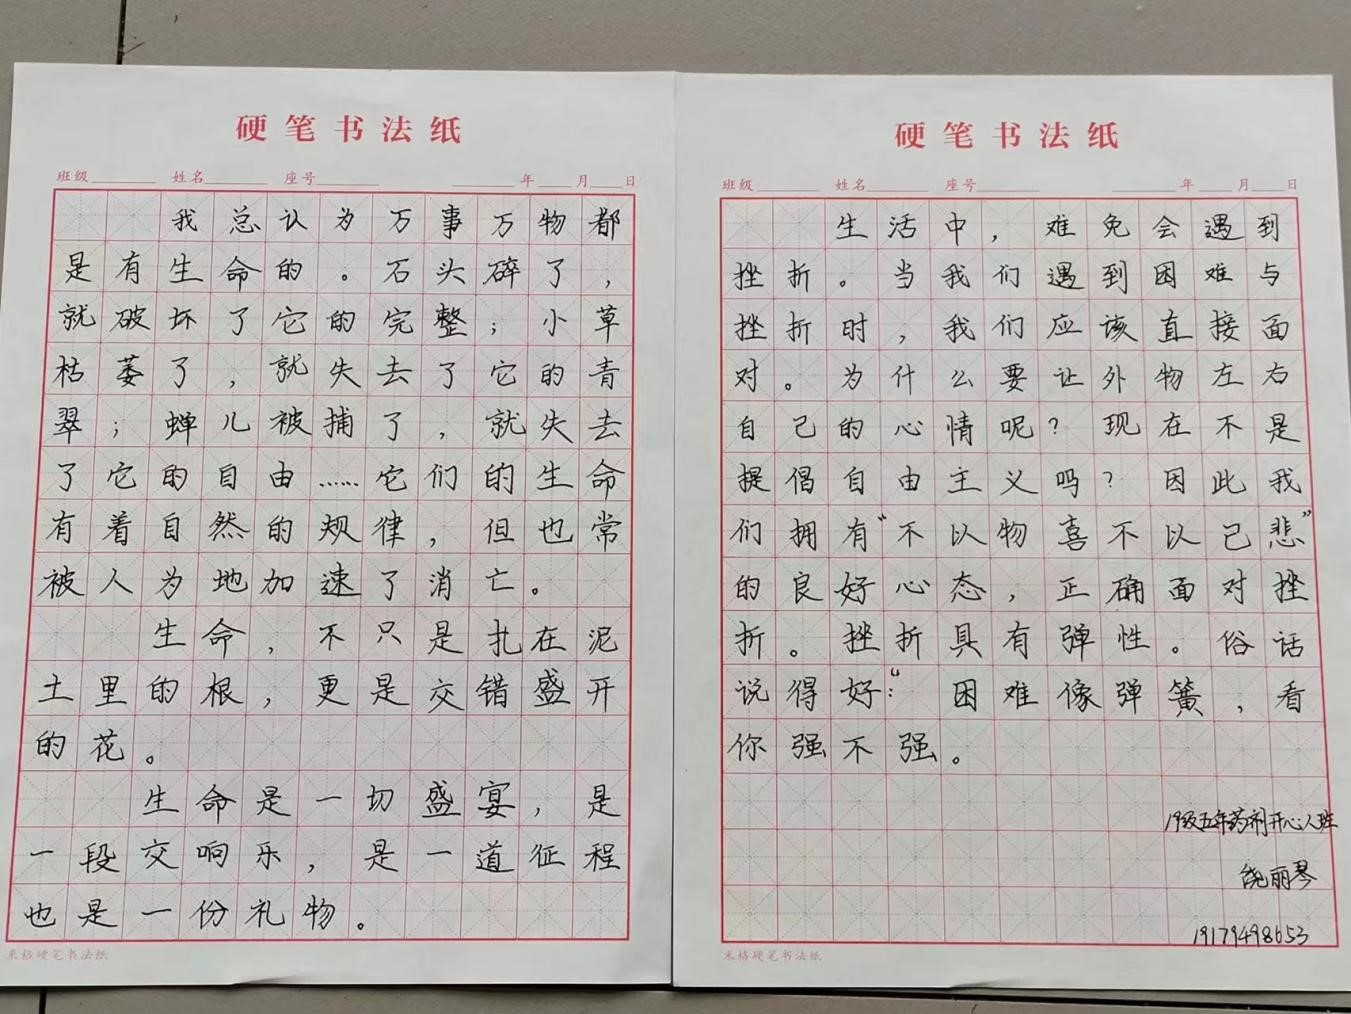 硬笔书法纸
班级 姓名 座号 年 月 日
我总认为万事万物都
是有生命的。石头碎了，
就破坏了它的完整；小草
枯萎了，就失去了它的青
翠；蝉儿被捕了，就失去
了它的自由……它们的生命
有着自然的规律，但也常
被人为地加速了消亡。
生命，不只是扎在泥
土里的根，更是交错盛开
的花。
生命是一切盛宴，是
一段交响乐，是一道征程
也是一份礼物。
米格硬笔书法纸
硬笔书法纸
班级 姓名 座号 年 月 日
生活中，难免会遇到
挫折。当我们遇到困难与
挫折时，我们应该直接面
对。为什么要让外物左右
自己的心情呢？现在不是
提倡自由主义吗？因此我
们拥有“不以物喜不以己悲”
的良好心态，正确面对挫
折。挫折具有弹性。俗话
说得好：“困难像弹簧，看
你强不强。
19级五年药剂开心人班
饶丽琴
19179498653
米格硬笔书法纸